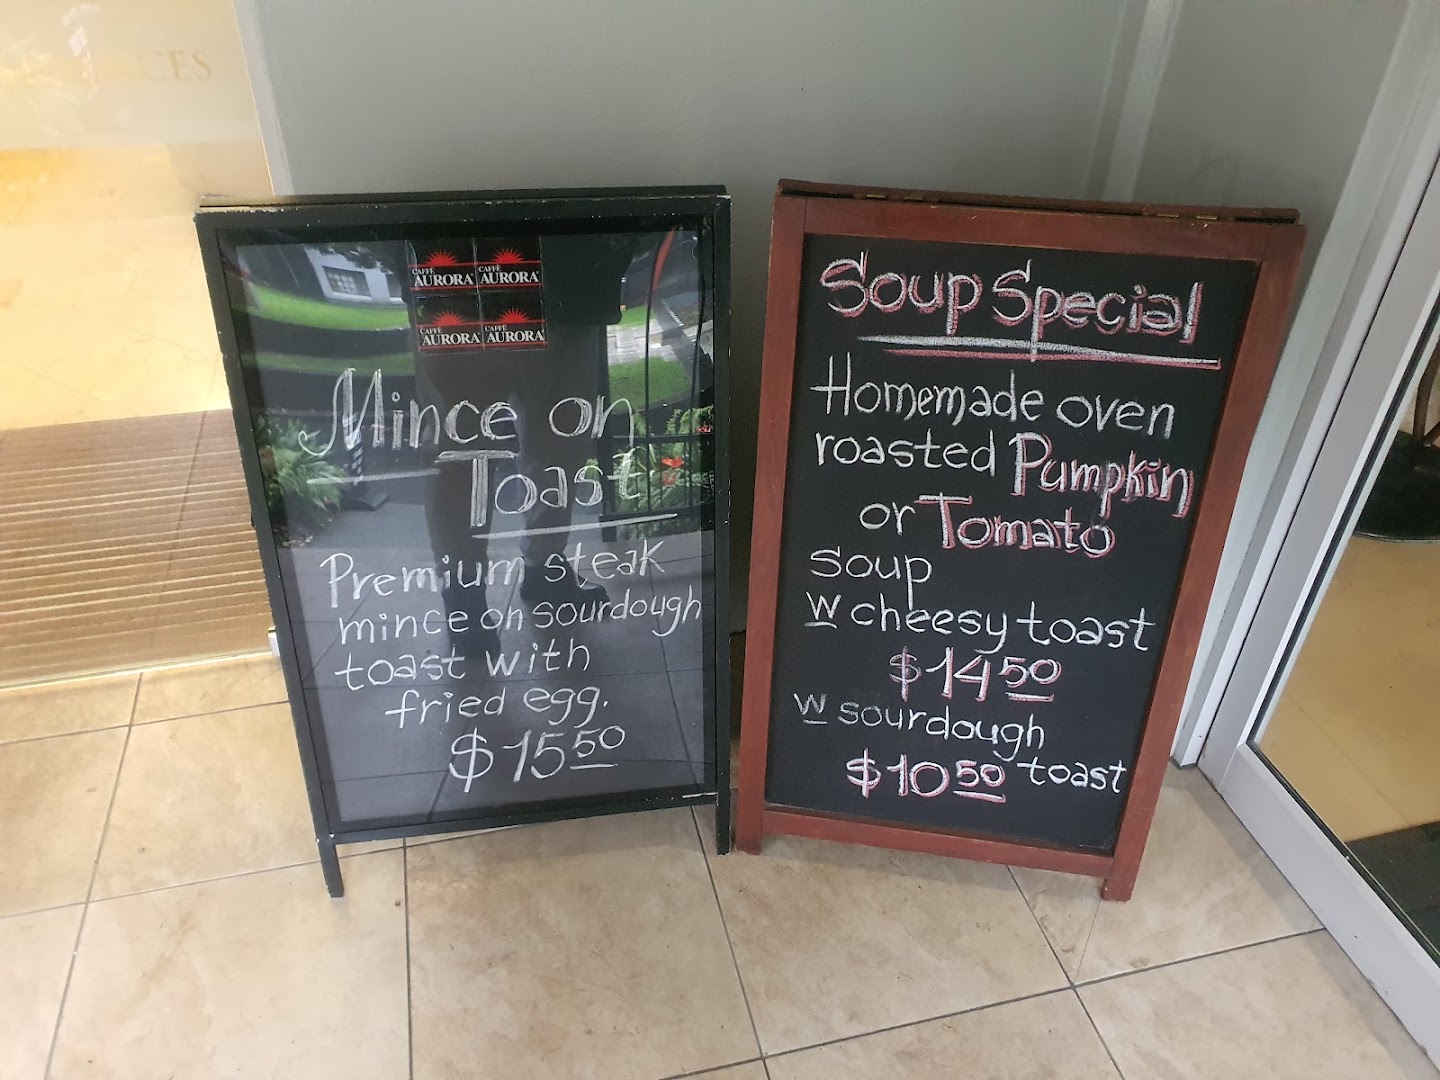 CES
CAFFÈ AURORA CAFFÈ AURORA
CAFFÈ AURORA CAFFÈ AURORA
Mince on
Toast
Premium steak
mince on sourdough
toast with
fried egg.
$15.50
Soup Special
Homemade oven
roasted Pumpkin
or Tomato
soup
W cheesy toast
$14.50
W sourdough
$10.50 toast